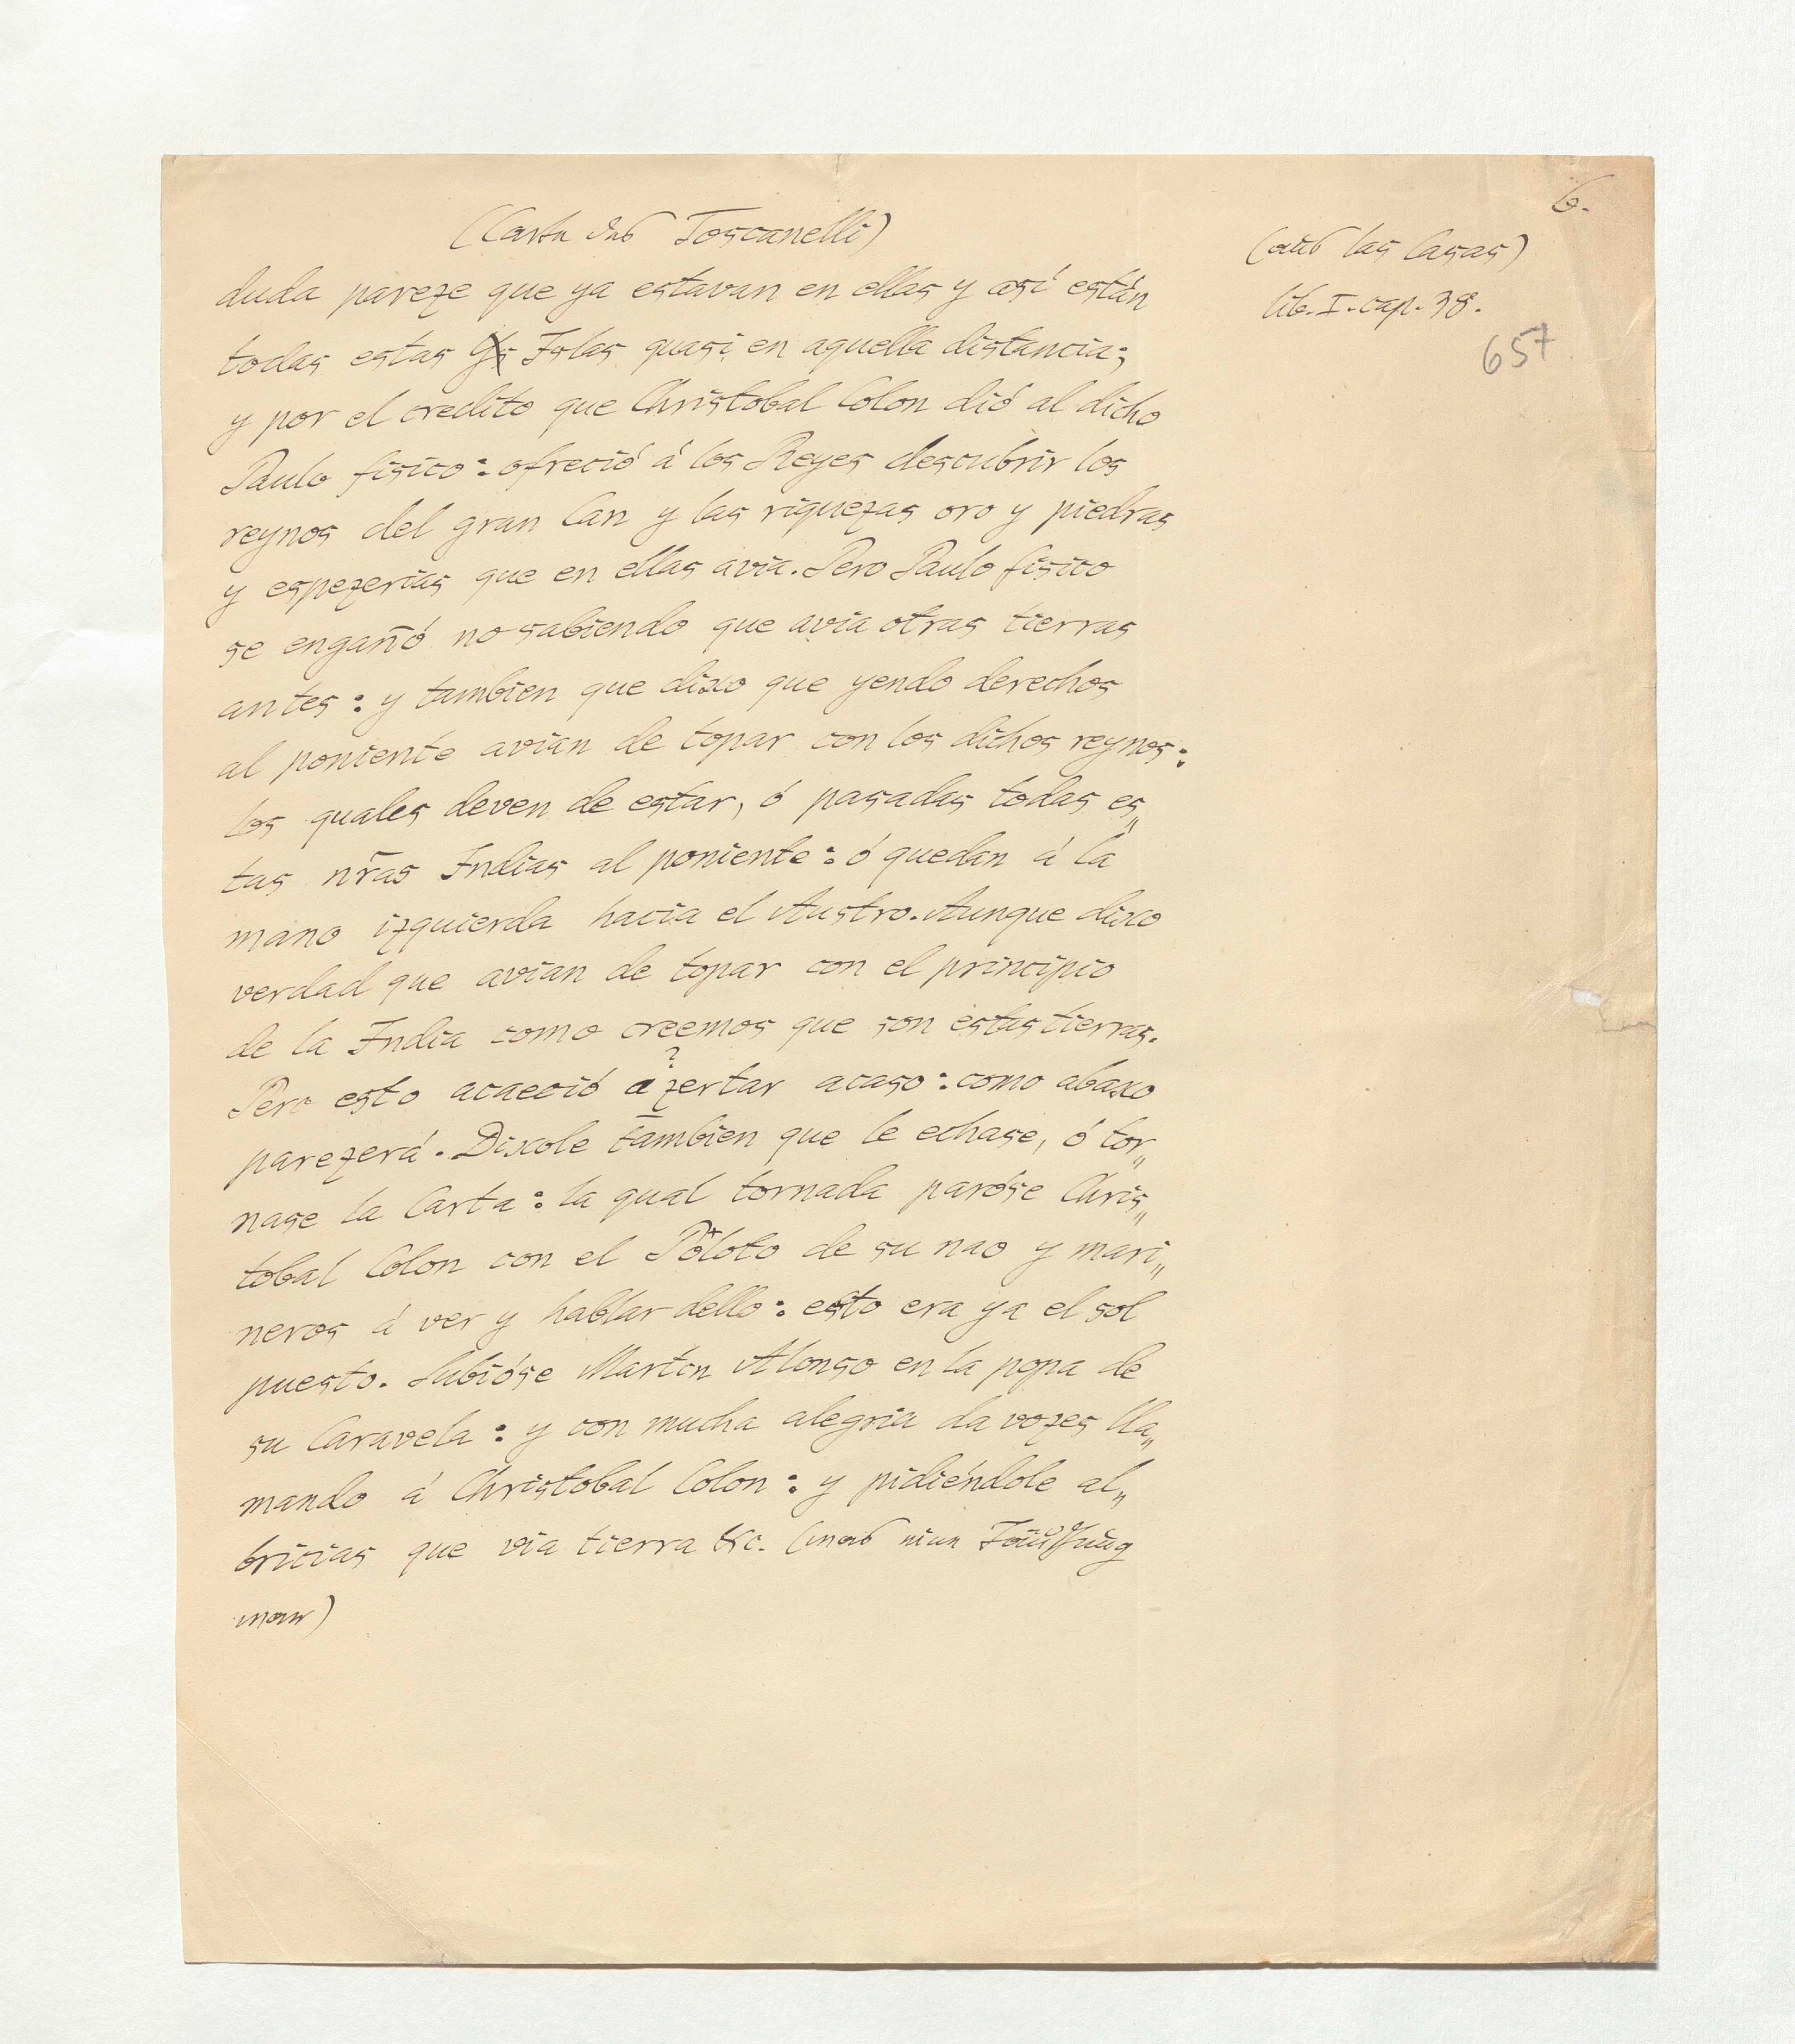 6.
(Carta des Toscanelli)
(aus las Casas)
lib. I. cap. 38.
657
duda pareze que ya estavan en ellas y así están
todas estas Islas quasi en aquella distancia;
y por el credito que Christobal Colon dió al dicho
Paulo fisico: ofreció á los Reyes descubrir los
reynos del gran Can y las riquezas oro y piedras
y espezerias que en ellas avia. Pero Paulo fisico
se engañó no sabiendo que avia otras tierras
antes: y tambien que dixo que yendo derechos
al poniente avian de topar con los dichos reynos:
los quales deven de estar, ó pasadas todas es„
tas nr̃as Indias al poniente: ó quedan á la
mano izquierda hacia el Austro. Aunque dixo
verdad que avian de topar con el principio
de la India como creemos que son estas tierras.
Pero esto acaeció azertar acaso: como abaxo
?
parezerá. Dixole tambien que le echase, ó tor„
nase la Carta: la qual tornada paróse Chris„
tobal Colon con el Piloto de su nao y mari„
neros á ver y hablar dello: esto era ya el sol
puesto. Subióse Martin Alonso en la popa de
su Caravela: y con mucha alegria da vozes lla„
mando á Christobal Colon: y pidiéndole al„
bricias que via tierra &c. (was eine Täuschung
war)